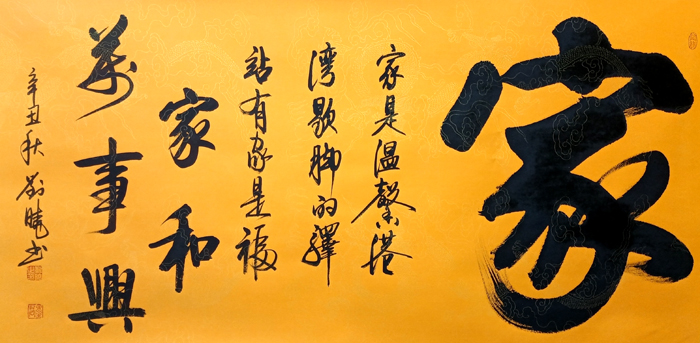 家
家是温馨港
湾歇脚的驛
站有家是福
家和
萬事興
辛丑秋劉曉书